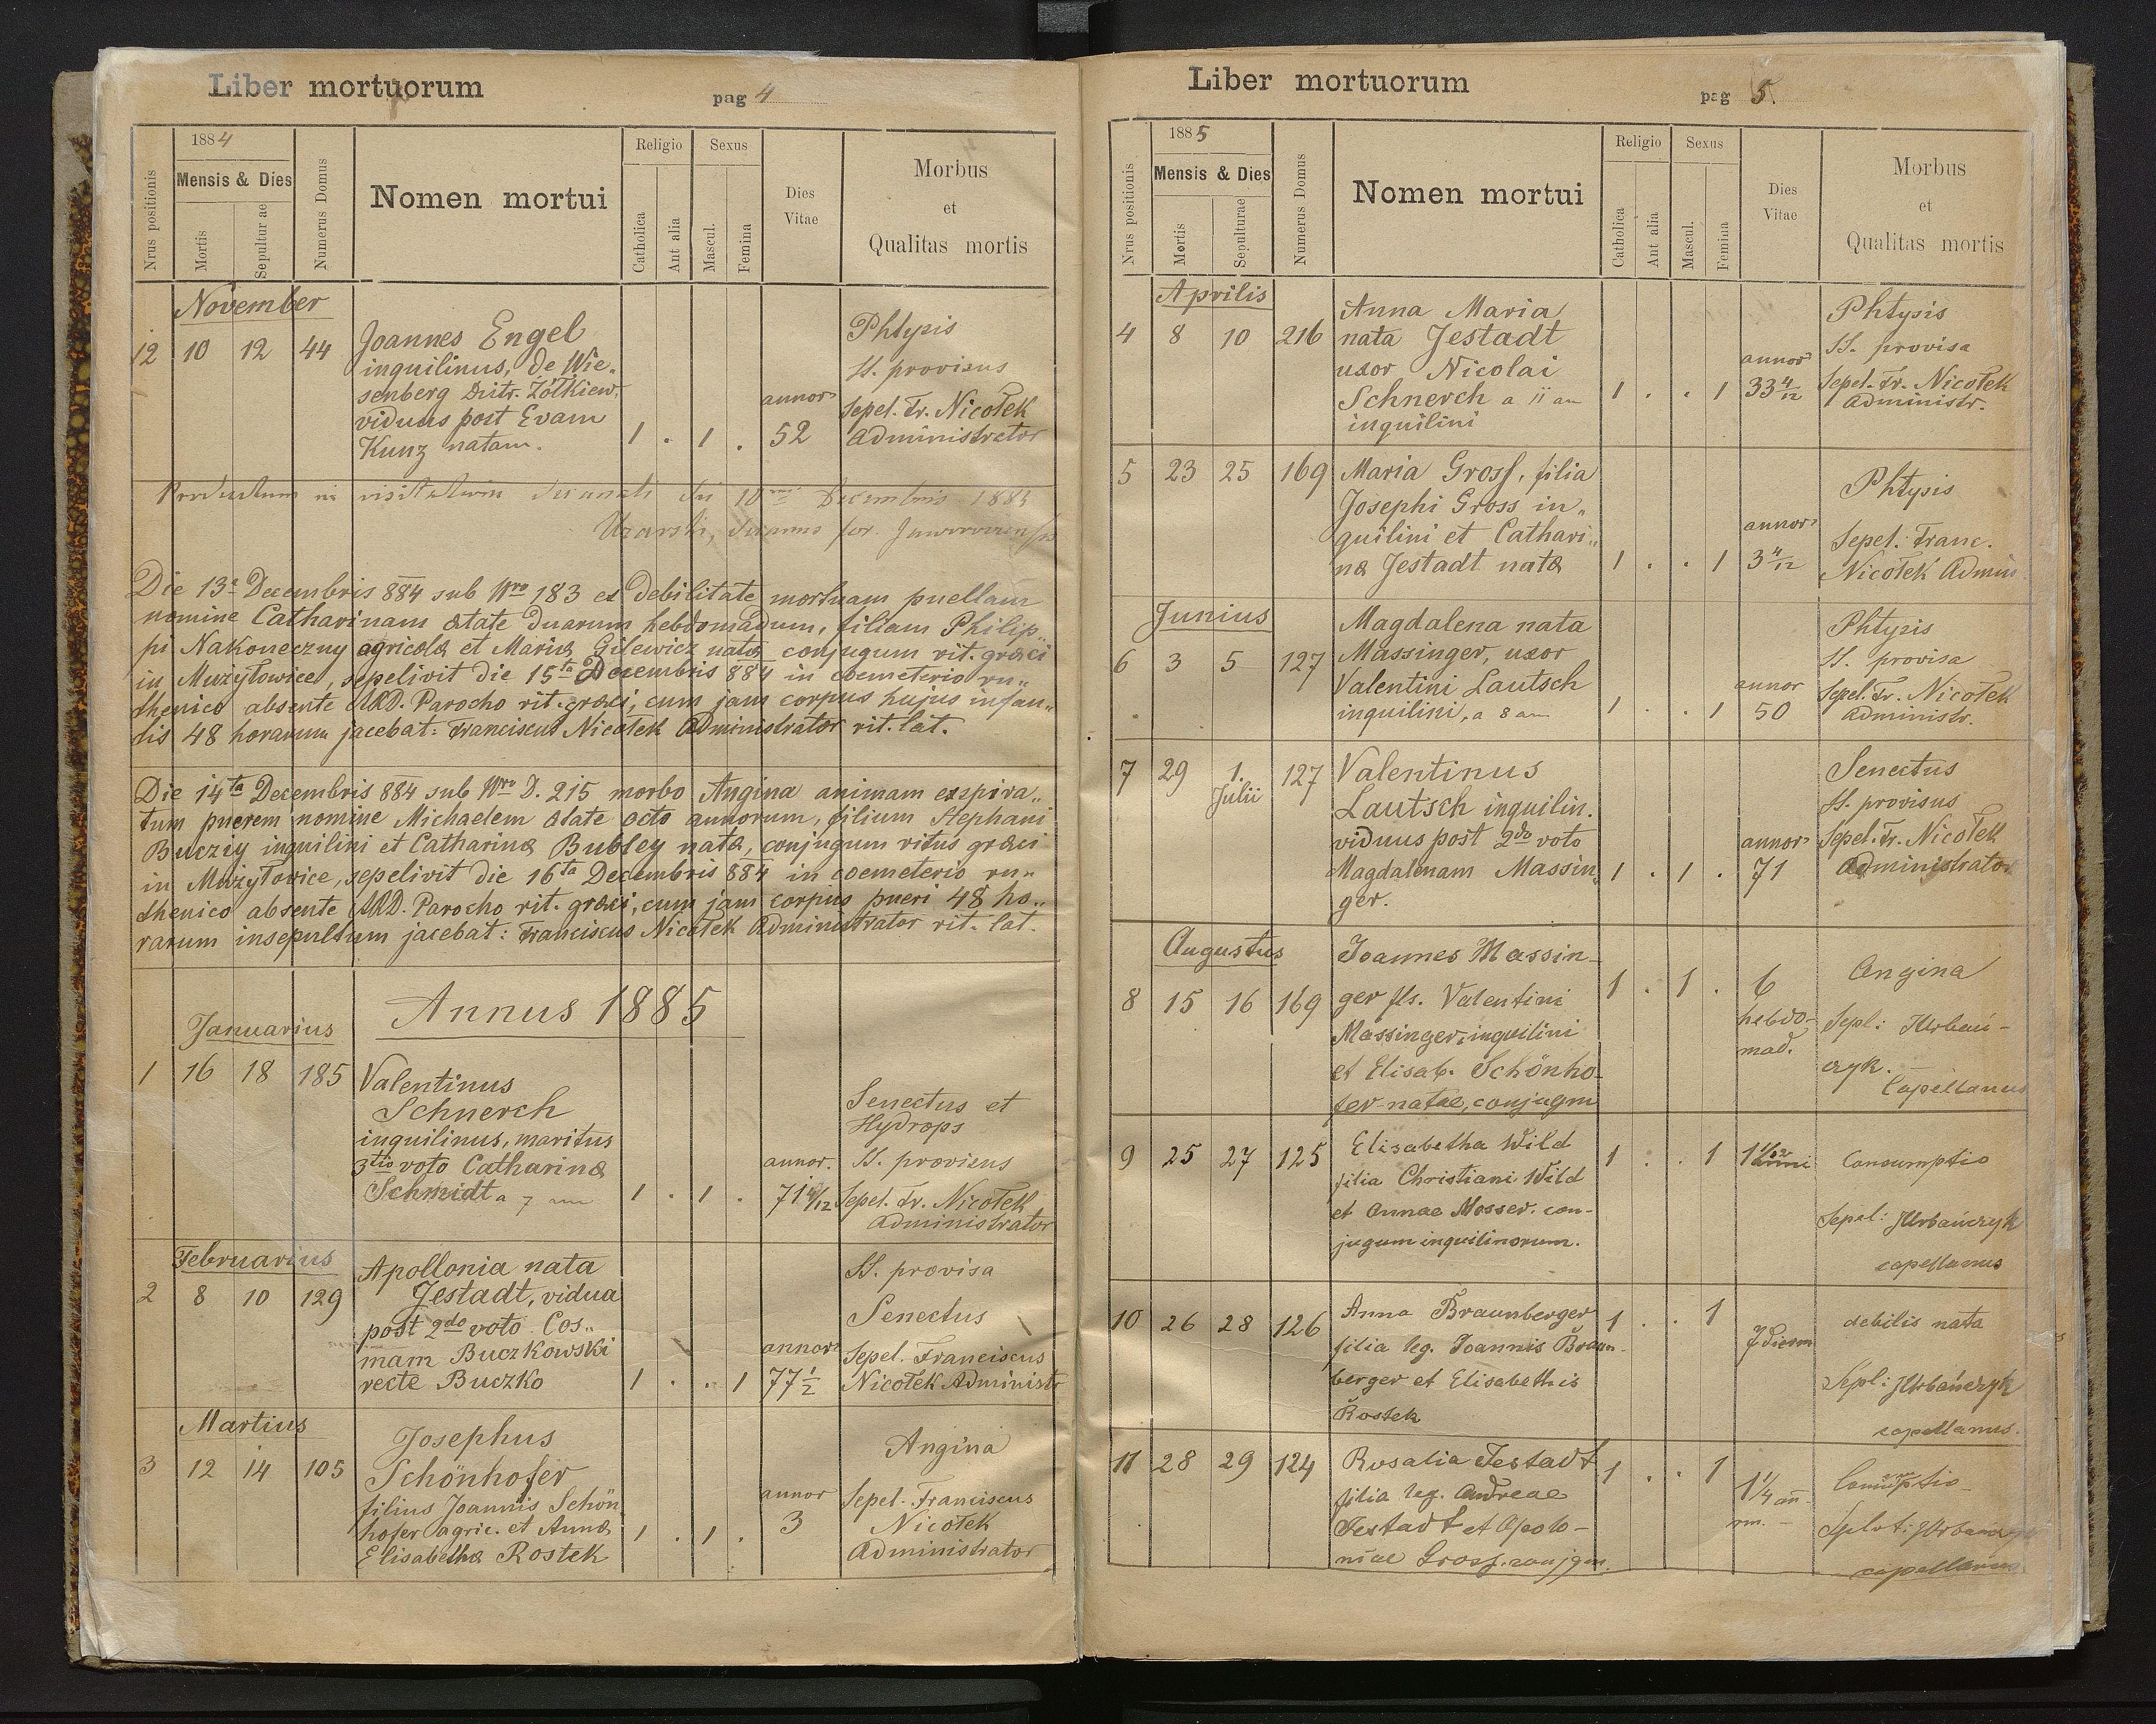 Liber mortuorum
pag 4
1884
Mensis & Dies
Nrus positionis
Mortis
Sepulturae
Numerus Domus
Nomen mortui
Religio
Catholica
Aut alia
Sexus
Mascul.
Femina
Dies
Vitae
Morbus
et
Qualitas mortis
November
12 10 12 44
Joannes Engel
inquilinus, de Wie„
senberg Distr. Żółkiew,
viduus post Evam
Kunz natam.
1 . 1 .
annor
52
Phtysis
SS. provisus
Sepel. Fr. Nicołek
Administrator
Productum in visitatione decanali die 10 Decembris 1884
Decanus for. Jaworoviensis
Die 13a Decembris 884 sub Nro 183 ex debilitate mortuam puellam
nomine Catharinam ætate duarum hebdomadum, filiam Philip„
pi Nakoneczny agricolæ et Mariæ Gilewicz natæ conjugum rit. græci
in Mużyłowice, sepelivit die 15ta Decembris 884 in coemeterio ru„
thenico absente ARD. Parocho rit. græci, cum jam corpus hujus infan„
tis 48 horarum jacebat: Franciscus Nicołek Administrator rit. lat.
Die 14ta Decembris 884 sub Nro D. 215 morbo Angina animam exspira„
tum puerem nomine Michaelem ætate octo annorum, filium Stephani
Buczij inquilini et Catharinæ Bubley natæ, conjugum ritus græci
in Mużyłowice, sepelivit die 16ta Decembris 884 in coemeterio ru„
thenico absente ARD. Parocho rit. græci, cum jam corpus pueri 48 ho„
rarum insepultum jacebat: Franciscus Nicołek Administrator rit. lat.
Annus 1885
Januarius
1 16 18 185
Valentinus
Schnerch
inquilinus, maritus
3tio voto Catharinæ
Schmidt a 7 an
1 . 1 .
annor.
71 4/12
Senectus et
Hydrops
SS. provisus
Sepel. Fr. Nicołek
Administrator
Februarius
2 8 10 129
Apollonia nata
Jestadt, vidua
post 2do voto Cos„
mam Buczkowski
recte Buczko
1 . . 1
annor
77 1/2
SS. provisa
Senectus
Sepel. Franciscus
Nicołek Administr
Martius
3 12 14 105
Josephus
Schönhofer
filius Joannis Schön
hofer agric. et Annæ
Elisabethæ Rostek
1 . 1 .
annor
3
Angina
Sepel. Franciscus
Nicołek
Administrator
Liber mortuorum
pag 5.
1885
Mensis & Dies
Nrus positionis
Mortis
Sepulturae
Numerus Domus
Nomen mortui
Religio
Catholica
Aut alia
Sexus
Mascul.
Femina
Dies
Vitae
Morbus
et
Qualitas mortis
Aprilis
4 8 10 216
Anna Maria
nata Jestadt
uxor Nicolai
Schnerch a 11 an
inquilini
1 . . 1
annor
33 4/12
Phtysis
SS. provisa
Sepel. Fr. Nicołek
Administr.
5 23 25 169
Maria Gross, filia
Josephi Gross in„
quilini et Cathari„
næ Jestadt natæ
1 . . 1
annor
3 4/12
Phtysis
Sepel. Franc.
Nicołek Admin
Junius
6 3 5 127
Magdalena nata
Massinger, uxor
Valentini Lautsch
inquilini, a 8 an
1 . . 1
annor
50
Phtysis
SS. provisa
Sepel. Fr. Nicołek
Administr.
7 29 1. 127
Julii
Valentinus
Lautsch inquilin.
viduus post 2do voto
Magdalenam Massin„
ger.
1 . 1 .
annor
71
Senectus
SS. provisus
Sepel. Fr. Nicołek
Administrator
Augustus
8 15 16 169
Joannes Massin-
ger fls. Valentini
Massinger, inquilini
et Elisab. Schönho-
fer natae, conjugm
1 . 1 .
6
hebdo-
mad.
Angina
Sepl: JUrbań-
czyk.
Capellanus
9 25 27 125
Elisabetha Wild
filia Christiani Wild
et Annae Mosser. con-
jugum inquilinorum.
1 . . 1
Consumptio
Sepel: JUrbańczyk
capellanus
10 26 28 126
Anna Braunberger
filia leg. Joannis Braun-
berger et Elisabethis
Rostek
1 . . 1
7 dierm
debilis nata
Sepl: JUrbańczyk
capellanus.
11 28 29 124
Rosalia Jestadt
filia leg. Andreae
Jestadt et Apolo-
niae Gross. conjgm.
1 . . 1
1 1/4 an-
rm.
Sepelvt: JUrbańczyk
capellanus